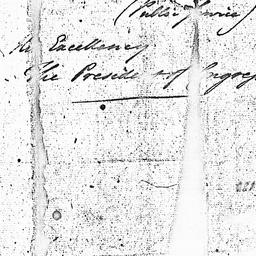 (Public Service)
His Excellency
The President of Congress